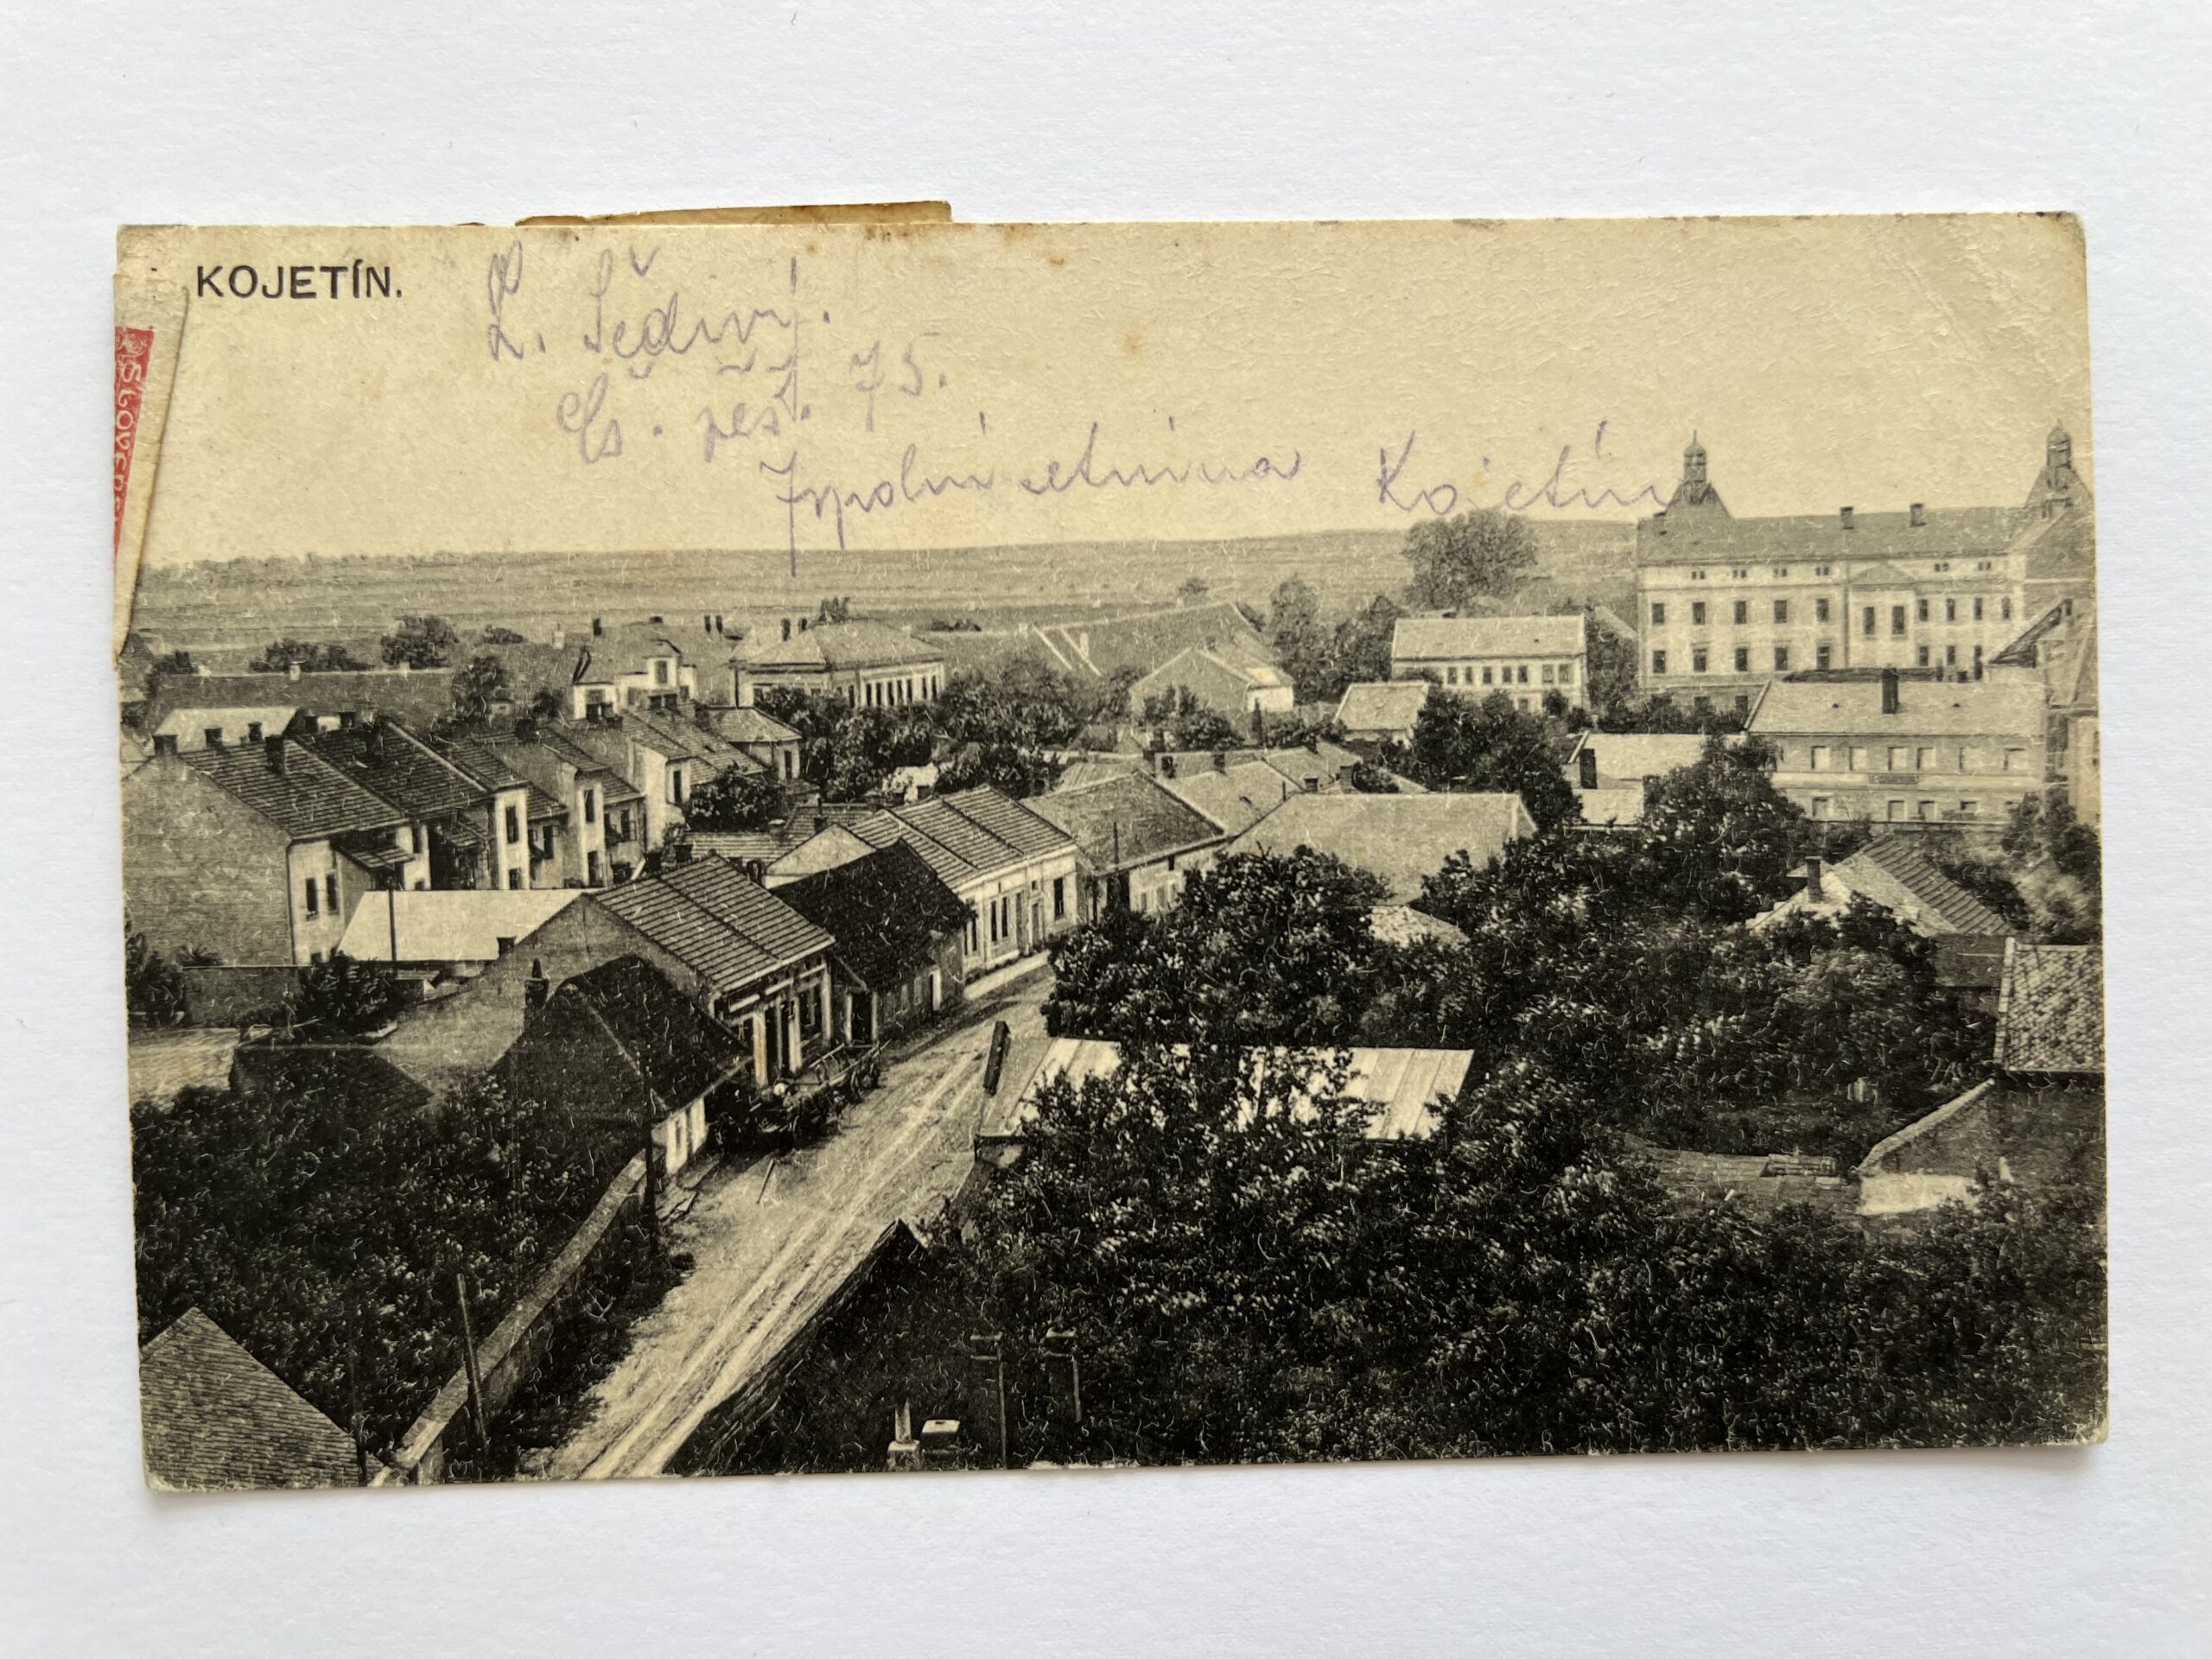 KOJETÍN.
Šedivý.
Čs. pěš. 75.
polní setnina Kojetín